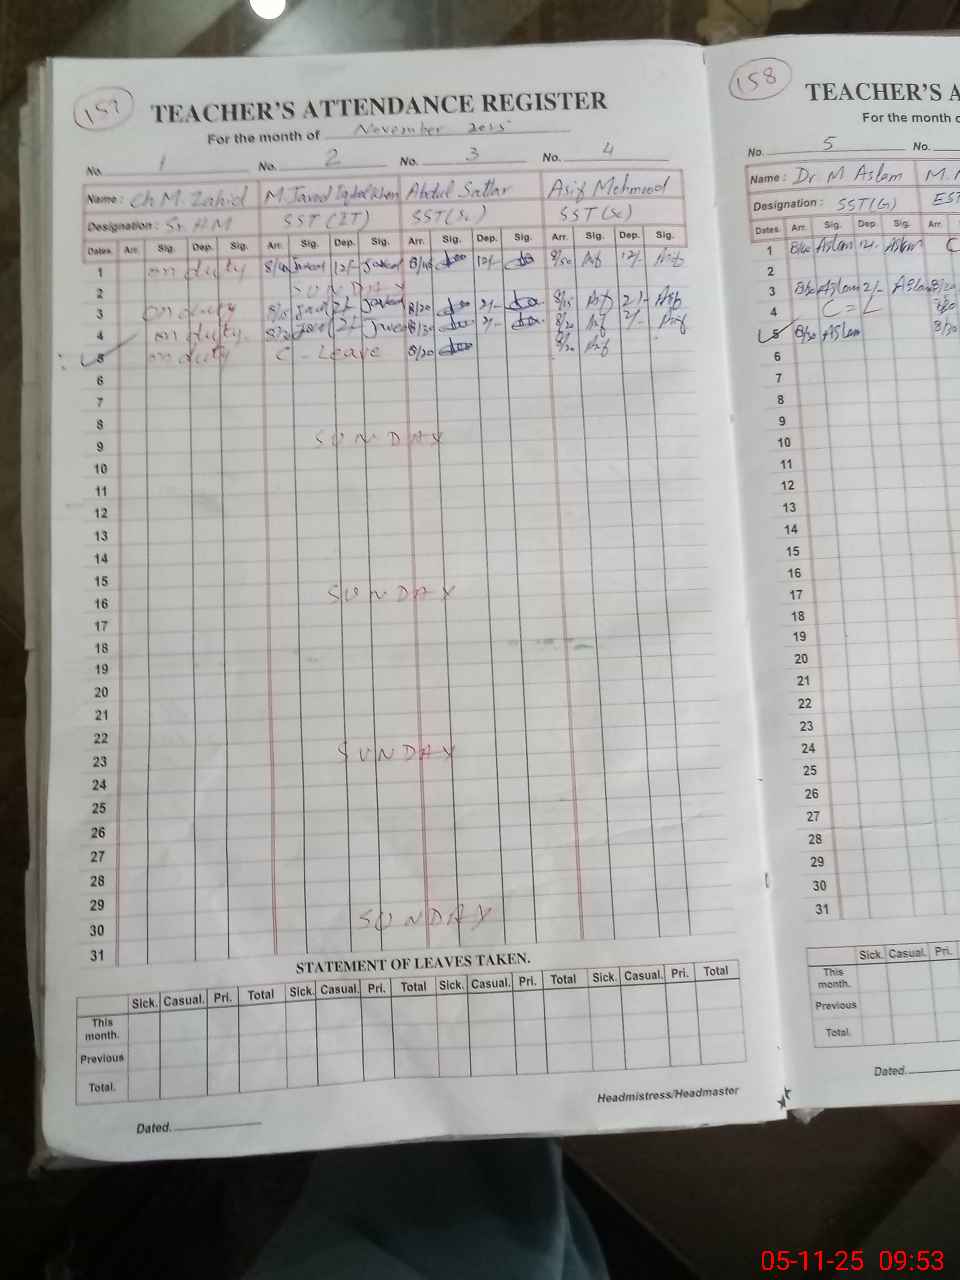 157
TEACHER'S ATTENDANCE REGISTER
For the month of November 2025
No. 1 No. 2 No. 3 No. 4
Name: Ch M. Zahid M. Javed Iqbal Khan Abdul Sattar Asif Mehmood
Designation: Sr. HM SST (IT) SST (Sc) SST (Sc)
Dates Arr. Sig. Dep. Sig. Arr. Sig. Dep. Sig. Arr. Sig. Dep. Sig. Arr. Sig. Dep. Sig.
1 on duty 12/- 12/- 8/50 Asif 12/- Asif
2 SUNDAY
3 on duty 8/15 2/- Javed 8/20 2/- 8/15 Asif 2/- Asif
4 on duty 2/- Javed 8/20 2/- 8/20 Asif 2/- Asif
5 on duty C - Leave 8/20 8/20 Asif
6
7
8
9 SUNDAY
10
11
12
13
14
15
16 SUNDAY
17
18
19
20
21
22
23 SUNDAY
24
25
26
27
28
29
30 SUNDAY
31
STATEMENT OF LEAVES TAKEN.
Sick. Casual. Pri. Total Sick. Casual. Pri. Total Sick. Casual. Pri. Total Sick. Casual. Pri. Total
This month.
Previous
Total.
Headmistress/Headmaster
Dated.
158
TEACHER'S A
For the month o
No. 5 No.
Name: Dr M Aslam M.
Designation: SST(G) EST
Dates Arr. Sig. Dep. Sig. Arr.
1 Aslam 12/- Aslam C
2
3 8/20 Aslam 2/- Aslam 8/20
4 C = L
5 8/30 Aslam 8/30
6
7
8
9
10
11
12
13
14
15
16
17
18
19
20
21
22
23
24
25
26
27
28
29
30
31
Sick. Casual. Pri.
This month.
Previous
Total.
Dated.
05-11-25 09:53